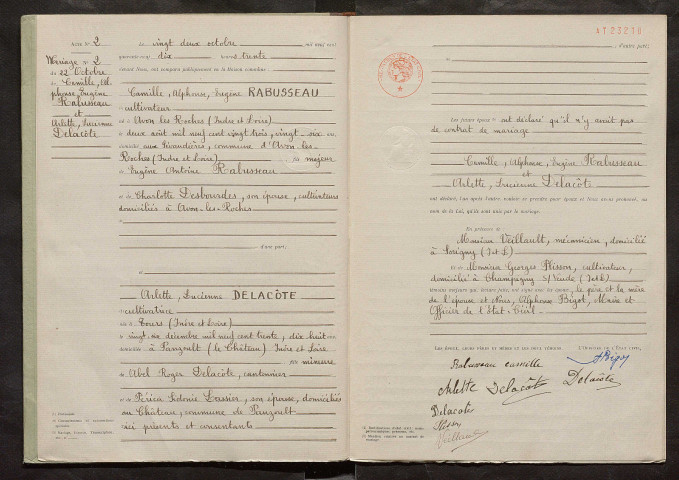 Acte N° 2
Mariage N° 2
du 22 Octobre
de Camille, Al-
phonse, Eugène
Rabusseau
et
Arlette, Lucienne
Delacôte
Le vingt deux octobre mil neuf cent
quarante-neuf dix heures trente
devant Nous, ont comparu publiquement en la Maison commune :
Camille, Alphonse, Eugène RABUSSEAU
cultivateur
né à Avon les Roches (Indre et Loire)
le deux août mil neuf cent vingt trois, vingt-six ans
domicilié aux commune d'Avon-les-
Roches (Indre et Loire) fils majeur
de Eugène Antoine Rabusseau
et de Charlotte Desbourdes, son épouse, cultivateurs
domiciliés à Avon-les-Roches
d'une part;
et
Arlette, Lucienne DELACÔTE
cultivatrice
née à Tours (Indre et Loire)
le vingt six décembre mil neuf cent trente, dix huit ans
domiciliée à Panzoult (le Château) Indre et Loire
fille mineure
de Abel Roger Delacôte, cantonnier
et de son épouse, domiciliés
au Château, commune de Panzoult
ici présents et consentants
d'autre part;
Les futurs époux ont déclaré qu'il n'y avait pas
de contrat de mariage
Camille, Alphonse, Eugène Rabusseau
et
Arlette, Lucienne Delacôte
ont déclaré, l'un après l'autre, vouloir se prendre pour époux et Nous avons prononcé, au
nom de la Loi, qu'ils sont unis par le mariage.
En présence de
Monsieur Veillault, mécanicien, domicilié
à Sorigny (I et L)
et de Monsieur Georges Plisson, cultivateur,
domicilié à Champigny s/ Veude (I et L)
témoins majeurs qui, lecture faite, ont signé avec les époux, le père et la mère
de l'épouse et Nous, Alphonse Bigot, Maire et
Officier de l'Etat-Civil.
Rabusseau camille
ABigot
Arlette Delacôte Delacôte
Delacote
Plisson
Veillault